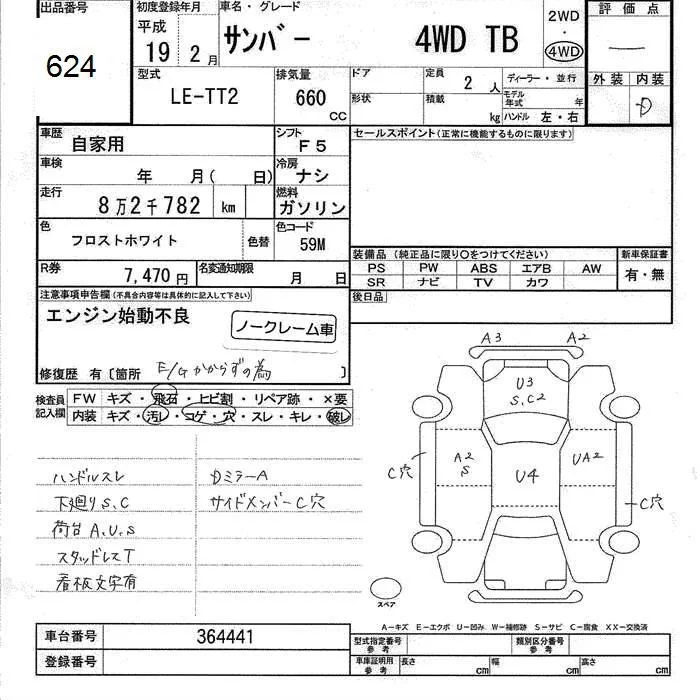 出品番号
624
初度登録年月
平成
19 2 月
車名・グレード
サンバー 4WD TB
2WD
・
4WD
評価点
―
外装 内装
D
型式
LE-TT2
排気量
660
CC
ドア
形状
定員
2 人
積載
kg
ディーラー・並行
モデル年式 年
ハンドル 左・右
車歴
自家用
シフト
F5
車検
年 月( 日)
冷房
ナシ
走行
8万2千782 km
燃料
ガソリン
色
フロストホワイト
色替
色コード
59M
R券
7,470円
名変通知期限
月 日
セールスポイント(正常に機能するものに限ります)
装備品 (純正品に限り○をつけてください)
PS PW ABS エアB AW
SR ナビ TV カワ
新車保証書
有・無
後日品
注意事項申告欄(不具合内容等は具体的に記入して下さい)
エンジン始動不良
ノークレーム車
修復歴 有〔箇所 E/Gかからずの為 〕
検査員記入欄
FW キズ・飛石・ヒビ割・リペア跡・×要
内装 キズ・汚し・コゲ・穴・スレ・キレ・破し
ハンドルスレ
下廻りS,C
荷台A,U,S
スタッドレスT
看板文字有
DミラーA
サイドメンバーC穴
A3 A2
U3
S,C2
A2
S
U4
UA2
C穴
C穴
スペア
A―キズ E―エクボ U―凹み W―補修跡 S―サビ C―腐食 XX―交換済
車台番号 364441
登録番号
型式指定番号
参考
類別区分番号
参考
車庫証明用
参考
長さ cm 幅 cm 高さ cm